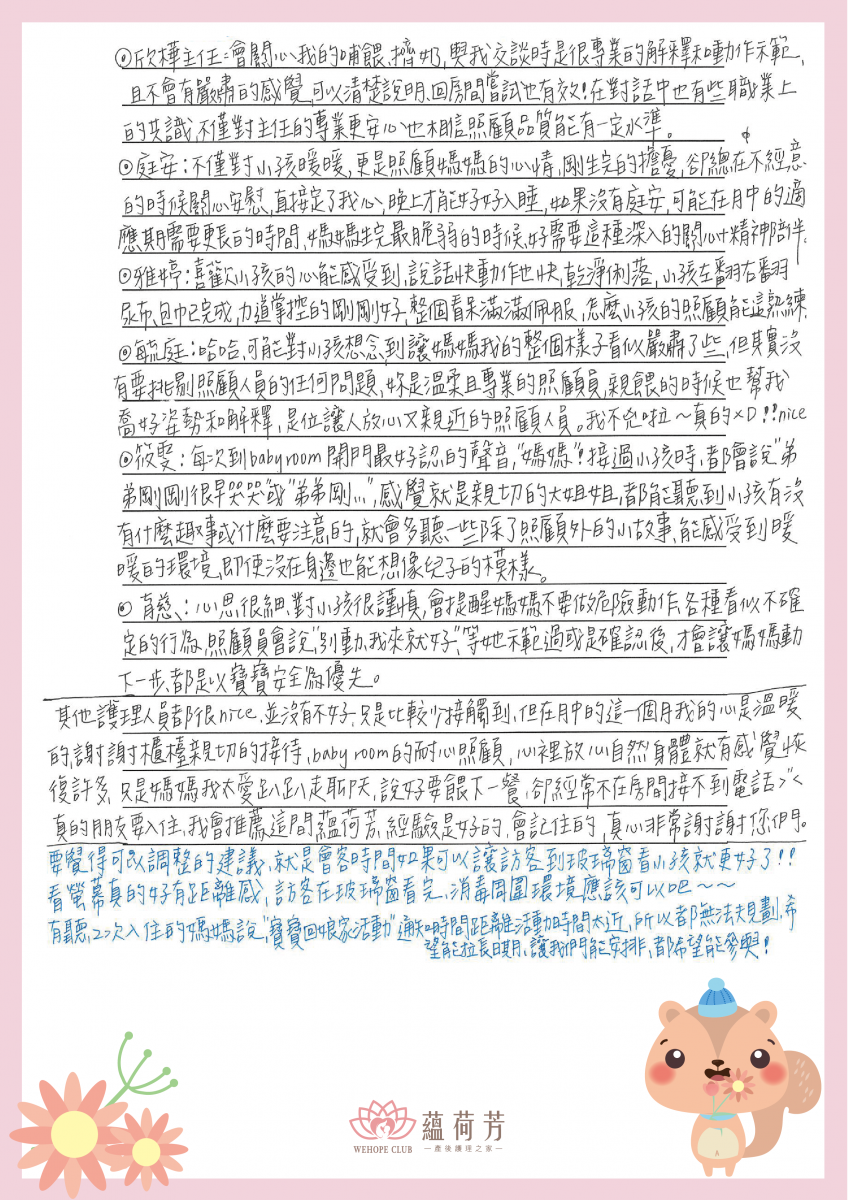 ◎欣樺主任：會關心我的哺餵、擠奶，與我交談時是很專業的解釋和動作示範，
且不會有嚴肅的感覺，可以清楚說明、回房間嘗試也有效！在對話中也有些職業上
的共識，不僅對主任的專業更安心也相信照顧品質能有一定水準。
◎庭安：不僅對小孩暖暖，更是照顧媽媽的心情，剛生完的擔憂，卻總在不經意
的時候關心安慰，直接定了我心，晚上才能好好入睡，如果沒有庭安，可能在月中的適
應期需要更長的時間、媽媽生完最脆弱的時候，好需要這種深入的關心+精神陪伴。
◎雅婷：喜歡小孩的心能感受到，說話快動作也快，乾淨俐落，小孩左翻右翻
尿布、包巾已完成，力道掌控的剛剛好，整個看呆滿滿佩服，怎麼小孩的照顧能這熟練
◎毓庭：哈哈，可能對小孩想念，到讓媽媽我的整個樣子看似嚴肅了些，但其實沒
有要挑剔照顧人員的任何問題，妳是溫柔且專業的照顧員，親餵的時候也幫我
喬好姿勢和解釋，是位讓人放心又親近的照顧人員。我不兇啦～真的×D!!nice
◎筱雯：每次到babyroom開門最好認的聲音，"媽媽"！接過小孩時，都會說"弟
弟剛剛很早哭哭"或"弟弟剛…"，感覺就是親切的大姐姐，都能聽到小孩有沒
有什麼趣事或什麼要注意的，就會多聽一些除了照顧外的小故事，能感受到暖
暖的環境，即使沒在身邊也能想像兒子的模樣。
◎育慈：心思很細、對小孩很謹慎，會提醒媽媽不要做危險動作，各種看似不確
定的行為，照顧員會說"別動、我來就好"，等她示範過或是確認後，才會讓媽媽動
下一步，都是以寶寶安全為優先。
其他護理人員都很nice，並沒有不好，只是比較少接觸到，但在月中的這一個月我的心是溫暖
的，謝謝櫃檯親切的接待，baby room的耐心照顧，心裡放心自然身體就有感覺恢
復許多，只是媽媽我太愛趴趴走聊天，說好要餵下一餐，卻經常不在房間接不到電話>"<
真的朋友要入住，我會推薦這間蘊荷芳，經驗是好的，會記住的，真心非常謝謝您們。
要覺得可以調整的建議，就是會客時間如果可以讓訪客到玻璃窗看小孩就更好了!!
看螢幕真的好有距離感，訪客在玻璃窗看完，消毒周圍環境應該可以吧～～
有聽2次入住的媽媽說"寶寶回娘家活動"通知時間距離活動時間太近，所以都無法規劃，希
望能拉長日期，讓我們能安排，都希望能參與！
蘊荷芳
WEHOPE CLUB
產後護理之家